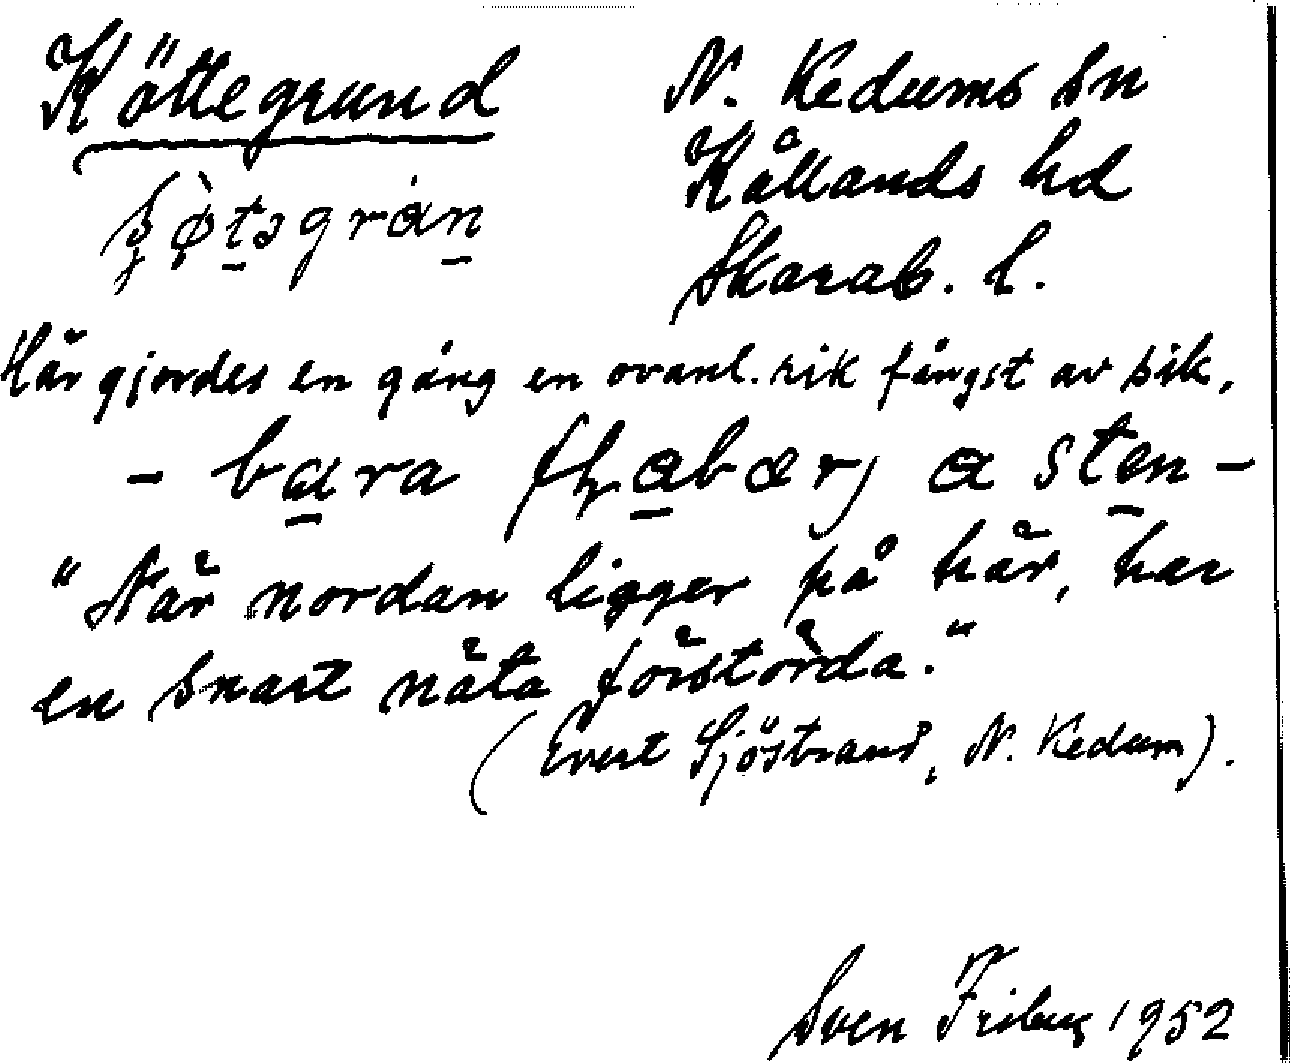 Köttegrund
N. Kedums sn
Kållands hd
Skarab. l.
Här gjordes en gång en ovanl. rik fångst av sik,
- bara a sten -
"När nordan ligger på här, har
en snart näta förstörda."
(Evert Sjöstrand, N. Kedum).
Sven Friberg 1952